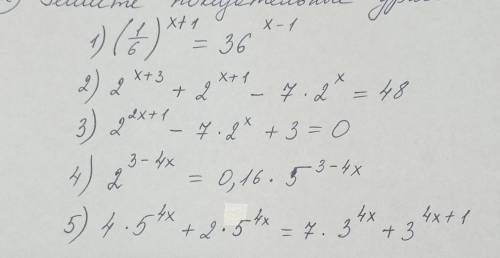 Решите показательные
1) (1/6)^{x+1} = 36^{x-1}
2) 2^{x+3} + 2^{x+1} - 7 · 2^x = 48
3) 2^{2x+1} - 7 · 2^x + 3 = 0
4) 2^{3-4x} = 0,16 · 5^{3-4x}
5) 4 · 5^{4x} + 2 · 5^{4x} = 7 · 3^{4x} + 3^{4x+1}